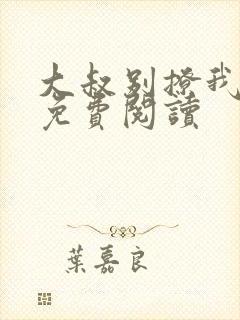 大叔别撩我
免費閱讀
葉嘉良